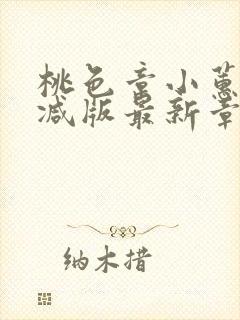 桃色章小蕙
减版最新章
纳木措